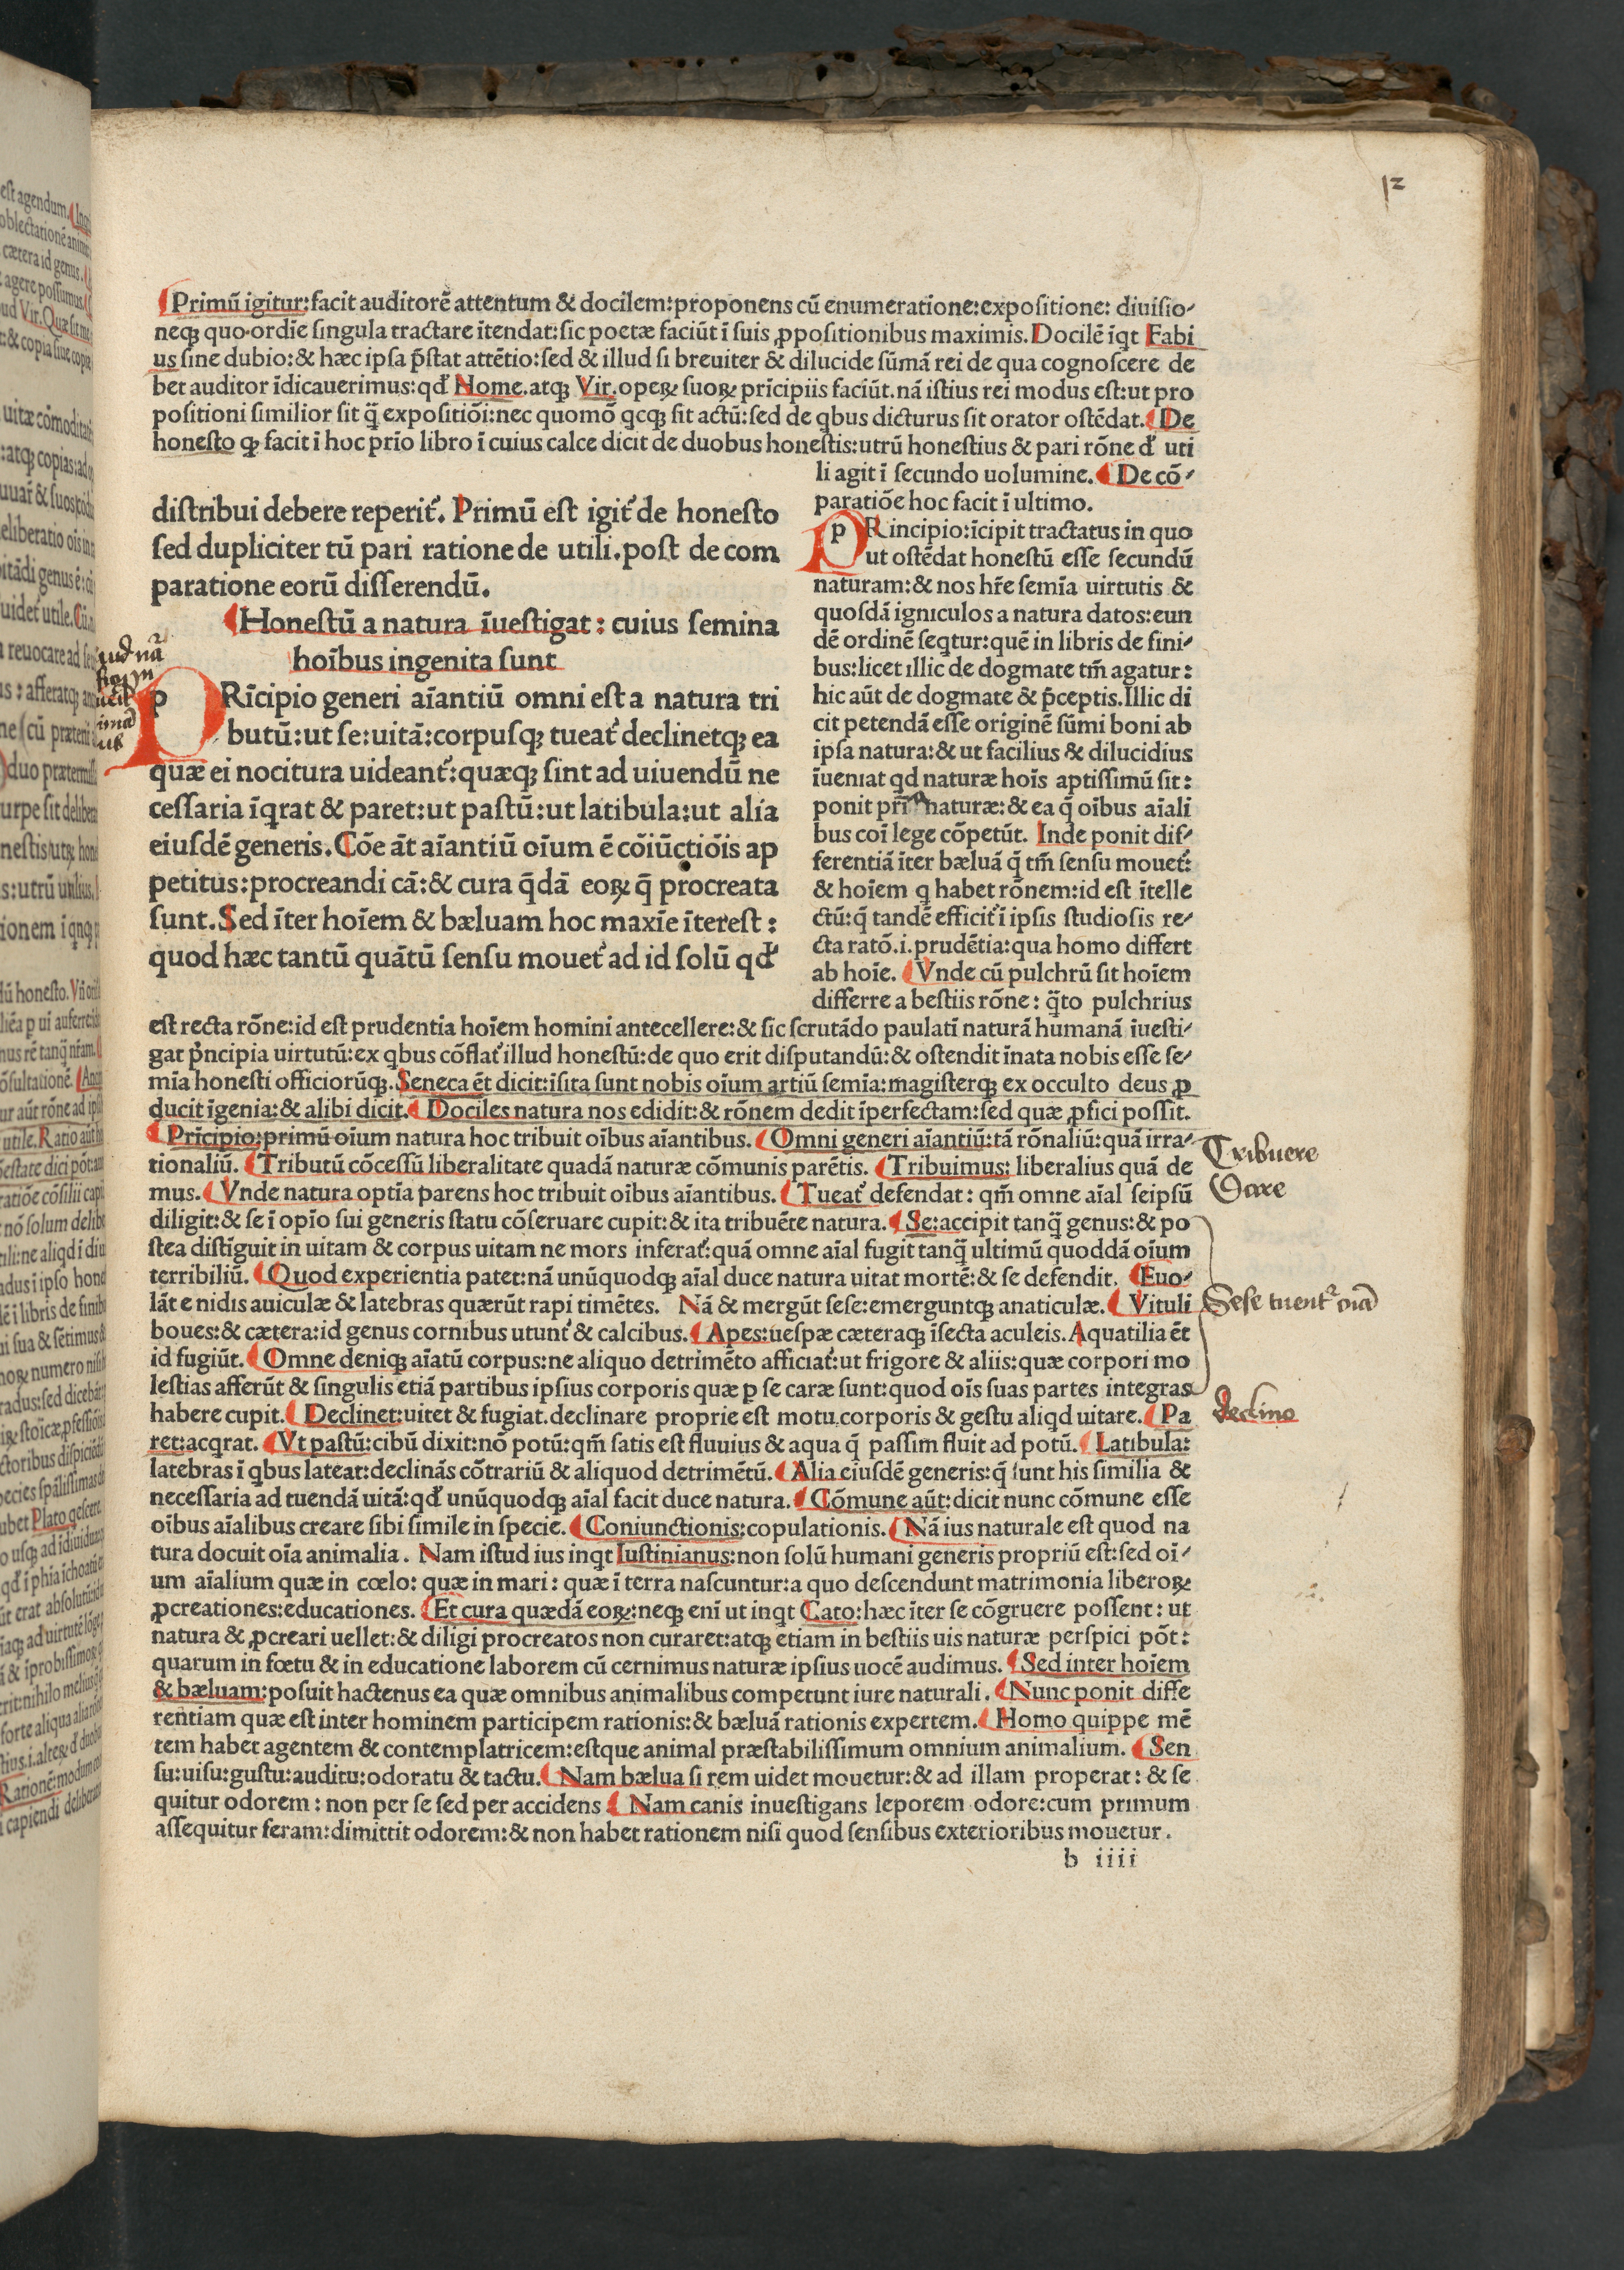 12
Primū igitur:facit auditorē attentum & docilem:proponens cū enumeratione:expositione: diuisio-
neqꝫ quo ordīe singula tractare ītendat:sic poetæ faciūt ī suis ꝓpositionibus maximis.Docilē īqt Fabi
us sine dubio:& hæc ipsa p̄stat attētio:sed & illud si breuiter & dilucide sūmā rei de qua cognoscere de
bet auditor īdicauerimus:qđ Nome.atqꝫ Vir.operꝝ suorꝝ prīcipiis faciūt.nā istius rei modus est:ut pro
positioni similior sit q̄ expositiōi:nec quomō qcqꝫ sit actū:sed de qbus dicturus sit orator ostēdat. De
honesto qꝫ facit ī hoc prīo libro ī cuius calce dicit de duobus honestis:utrū honestius & pari rōne đ uti
li agit ī secundo uolumine. De cō-
paratiōe hoc facit ī ultimo.
distribui debere reperit̄. Primū est igit̄ de honesto
sed dupliciter tū pari ratione de utili.post de com
paratione eorū disserendū.
Honestū a natura īuestigat: cuius semina
hoībus ingenita sunt
pRīcipio generi aīantiū omni est a natura tri
butū:ut se:uitā:corpusqꝫ tueat̄ declinetqꝫ ea
quæ ei nocitura uideant̄:quæqꝫ sint ad uiuendū ne
cessaria īqrat & paret:ut pastū:ut latibula:ut alia
eiusdē generis.Cōe āt aīantiū oīum ē cōiūctiōis ap
petitus:procreandi cā:& cura q̄dā eorꝝ q̄ procreata
sunt.Sed īter hoīem & bæluam hoc maxīe īterest:
quod hæc tantū quātū sensu mouet̄ ad id solū qđ
pRincipio:īcipit tractatus in quo
ut ostēdat honestū esse secundū
naturam:& nos hr̄e semīa uirtutis &
quosdā igniculos a natura datos:eun
dē ordinē seqtur:quē in libris de fini-
bus:licet illic de dogmate tm̄ agatur:
hic aūt de dogmate & p̄ceptis.Illic di
cit petendā esse originē sūmi boni ab
ipsa natura:& ut facilius & dilucidius
īueniat qd naturæ hoīs aptissimū sit:
ponit prīa naturæ:& ea q̄ oībus aīali
bus coī lege cōpetūt. Inde ponit dif-
ferentiā īter bæluā q̄ tm̄ sensu mouet̄:
& hoīem q habet rōnem:id est ītelle
ctū:q̄ tandē efficit̄ ī ipsis studiosis re-
cta ratō.i.prudētia:qua homo differt
ab hoīe. Vnde cū pulchrū sit hoīem
differre a bestiis rōne: q̄to pulchrius
est recta rōne:id est prudentia hoīem homini antecellere:& sic scrutādo paulatī naturā humanā īuesti-
gat prīncipia uirtutū:ex qbus cōflat̄ illud honestū:de quo erit disputandū:& ostendit īnata nobis esse se-
mīa honesti officiorūqꝫ.Seneca ēt dicit:īsita sunt nobis oīum artiū semīa:magisterqꝫ ex occulto deus ꝓ
ducit īgenia:& alibi dicit. Dociles natura nos edidit:& rōnem dedit īperfectam:sed quæ ꝓfici possit.
Prīcipio:primū oīum natura hoc tribuit oībus aīantibus. Omni generi aīantiū:tā rōnaliū:quā irra-
tionaliū. Tributū cōcessū liberalitate quadā naturæ cōmunis parētis. Tribuimus: liberalius quā de
mus. Vnde natura optīa parens hoc tribuit oībus aīantibus. Tueat̄ defendat: qm̄ omne aīal seipsū
diligit:& se ī opīo sui generis statu cōseruare cupit:& ita tribuēte natura. Se:accipit tanq̄ genus:& po
stea distīguit in uitam & corpus uitam ne mors inferat̄:quā omne aīal fugit tanq̄ ultimū quoddā oīum
terribiliū. Quod experientia patet:nā unūquodqꝫ aīal duce natura uitat mortē:& se defendit. Euo-
lāt e nidis auiculæ & latebras quærūt rapi timētes. Nā & mergūt sese:emerguntqꝫ anaticulæ. Vituli
boues:& cætera:id genus cornibus utunt̄ & calcibus. Apes:uespæ cæteraqꝫ īsecta aculeis.Aquatilia ēt
id fugiūt. Omne deniqꝫ aīatū corpus:ne aliquo detrimēto afficiat̄:ut frigore & aliis:quæ corpori mo
lestias afferūt & singulis etiā partibus ipsius corporis quæ p̱ se caræ sunt:quod oīs suas partes integras
habere cupit. Declinet:uitet & fugiat.declinare proprie est motu corporis & gestu aliqd uitare. Pa
ret:acqrat. Vt pastū:cibū dixit:nō potū:qm̄ satis est fluuius & aqua q̄ passim fluit ad potū. Latibula:
latebras ī qbus lateat:declinās cōtrariū & aliquod detrimētū. Alia eiusdē generis:q̄ sunt his similia &
necessaria ad tuendā uitā:qđ unūquodqꝫ aīal facit duce natura. Cōmune aūt:dicit nunc cōmune esse
oībus aīalibus creare sibi simile in specie. Coniunctionis:copulationis. Nā ius naturale est quod na
tura docuit oīa animalia. Nam istud ius inqt Iustinianus:non solū humani generis propriū est:sed oī-
um aīalium quæ in cœlo: quæ in mari: quæ ī terra nascuntur:a quo descendunt matrimonia liberorꝝ
ꝓcreationes:educationes. Et cura quædā eorꝝ:neqꝫ enī ut inqt Cato:hæc īter se cōgruere possent: ut
natura & ꝓcreari uellet:& diligi procreatos non curaret:atqꝫ etiam in bestiis uis naturæ perspici pōt:
quarum in fœtu & in educatione laborem cū cernimus naturæ ipsius uocē audimus. Sed inter hoīem
& bæluam:posuit hactenus ea quæ omnibus animalibus competunt iure naturali. Nunc ponit diffe
rentiam quæ est inter hominem participem rationis:& bæluā rationis expertem. Homo quippe mē
tem habet agentem & contemplatricem:estque animal præstabilissimum omnium animalium. Sen
su:uisu:gustu:auditu:odoratu & tactu. Nam bælua si rem uidet mouetur:& ad illam properat: & se
quitur odorem: non per se sed per accidens Nam canis inuestigans leporem odore:cum primum
assequitur feram:dimittit odorem:& non habet rationem nisi quod sensibus exterioribus mouetur.
b iiii
Tribuere
Dare
Sese tuent̄
declino